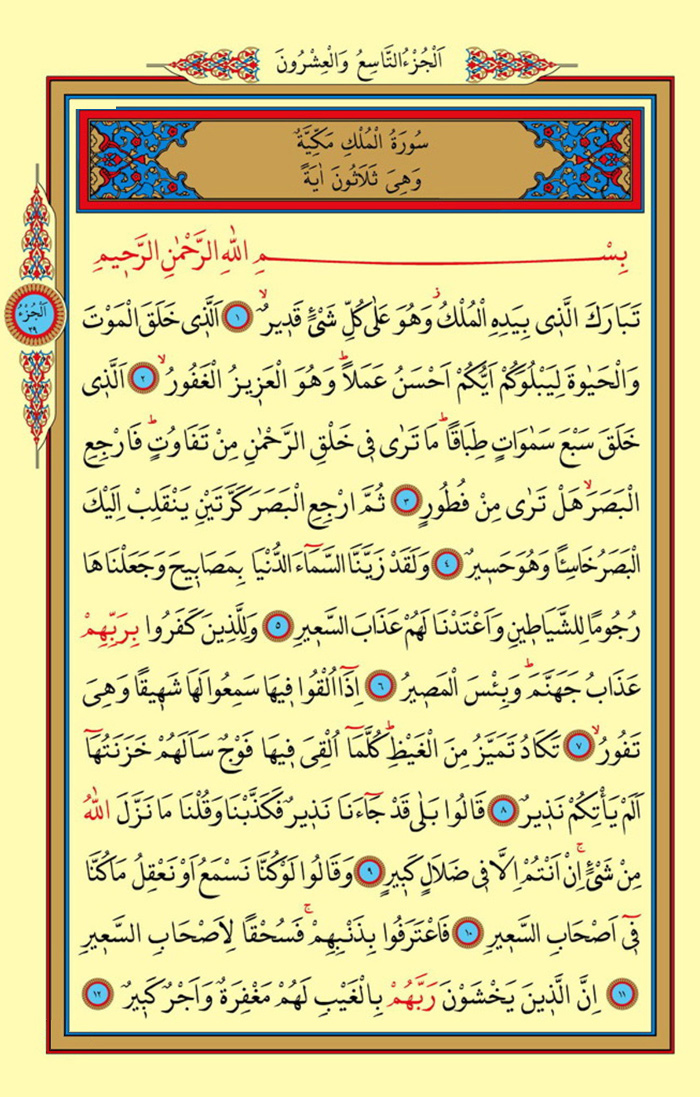 اَلْجُزْءُ التَّاسِعُ وَالْعِشْرُونَ
سُورَةُ الْمُلْكِ مَكِّيَّةٌ
وَهِىَ ثَلَاثُونَ اٰيَةً
بِسْمِ اللّٰهِ الرَّحْمٰنِ الرَّح۪يمِ
اَلْجُزْءُ
٢٩
تَبَارَكَ الَّذ۪ى بِيَدِهِ الْمُلْكُۘ وَهُوَ عَلٰى كُلِّ شَىْءٍ قَد۪يرٌۙ ١ اَلَّذ۪ى خَلَقَ الْمَوْتَ
وَالْحَيٰوةَ لِيَبْلُوَكُمْ اَيُّكُمْ اَحْسَنُ عَمَلًاۜ وَهُوَ الْعَز۪يزُ الْغَفُورُۙ ٢ اَلَّذ۪ى
خَلَقَ سَبْعَ سَمٰوَاتٍ طِبَاقًاۜ مَا تَرٰى ف۪ى خَلْقِ الرَّحْمٰنِ مِنْ تَفَاوُتٍۜ فَارْجِعِ
الْبَصَرَۙ هَلْ تَرٰى مِنْ فُطُورٍ ٣ ثُمَّ ارْجِعِ الْبَصَرَ كَرَّتَيْنِ يَنْقَلِبْ اِلَيْكَ
الْبَصَرُ خَاسِئًا وَهُوَ حَس۪يرٌ ٤ وَلَقَدْ زَيَّنَّا السَّمَٓاءَ الدُّنْيَا بِمَصَاب۪يحَ وَجَعَلْنَاهَا
رُجُومًا لِلشَّيَاط۪ينِ وَاَعْتَدْنَا لَهُمْ عَذَابَ السَّع۪يرِ ٥ وَلِلَّذ۪ينَ كَفَرُوا بِرَبِّهِمْ
عَذَابُ جَهَنَّمَۜ وَبِئْسَ الْمَص۪يرُ ٦ اِذَٓا اُلْقُوا ف۪يهَا سَمِعُوا لَهَا شَه۪يقًا وَهِىَ
تَفُورُۙ ٧ تَكَادُ تَمَيَّزُ مِنَ الْغَيْظِۜ كُلَّمَٓا اُلْقِىَ ف۪يهَا فَوْجٌ سَاَلَهُمْ خَزَنَتُهَٓا
اَلَمْ يَأْتِكُمْ نَذ۪يرٌ ٨ قَالُوا بَلٰى قَدْ جَٓاءَنَا نَذ۪يرٌ فَكَذَّبْنَا وَقُلْنَا مَا نَزَّلَ اللّٰهُ
مِنْ شَىْءٍۚ اِنْ اَنْتُمْ اِلَّا ف۪ى ضَلَالٍ كَب۪يرٍ ٩ وَقَالُوا لَوْ كُنَّا نَسْمَعُ اَوْ نَعْقِلُ مَا كُنَّا
ف۪ٓى اَصْحَابِ السَّع۪يرِ ١٠ فَاعْتَرَفُوا بِذَنْبِهِمْۚ فَسُحْقًا لِاَصْحَابِ السَّع۪يرِ
١١ اِنَّ الَّذ۪ينَ يَخْشَوْنَ رَبَّهُمْ بِالْغَيْبِ لَهُمْ مَغْفِرَةٌ وَاَجْرٌ كَب۪يرٌ ١٢